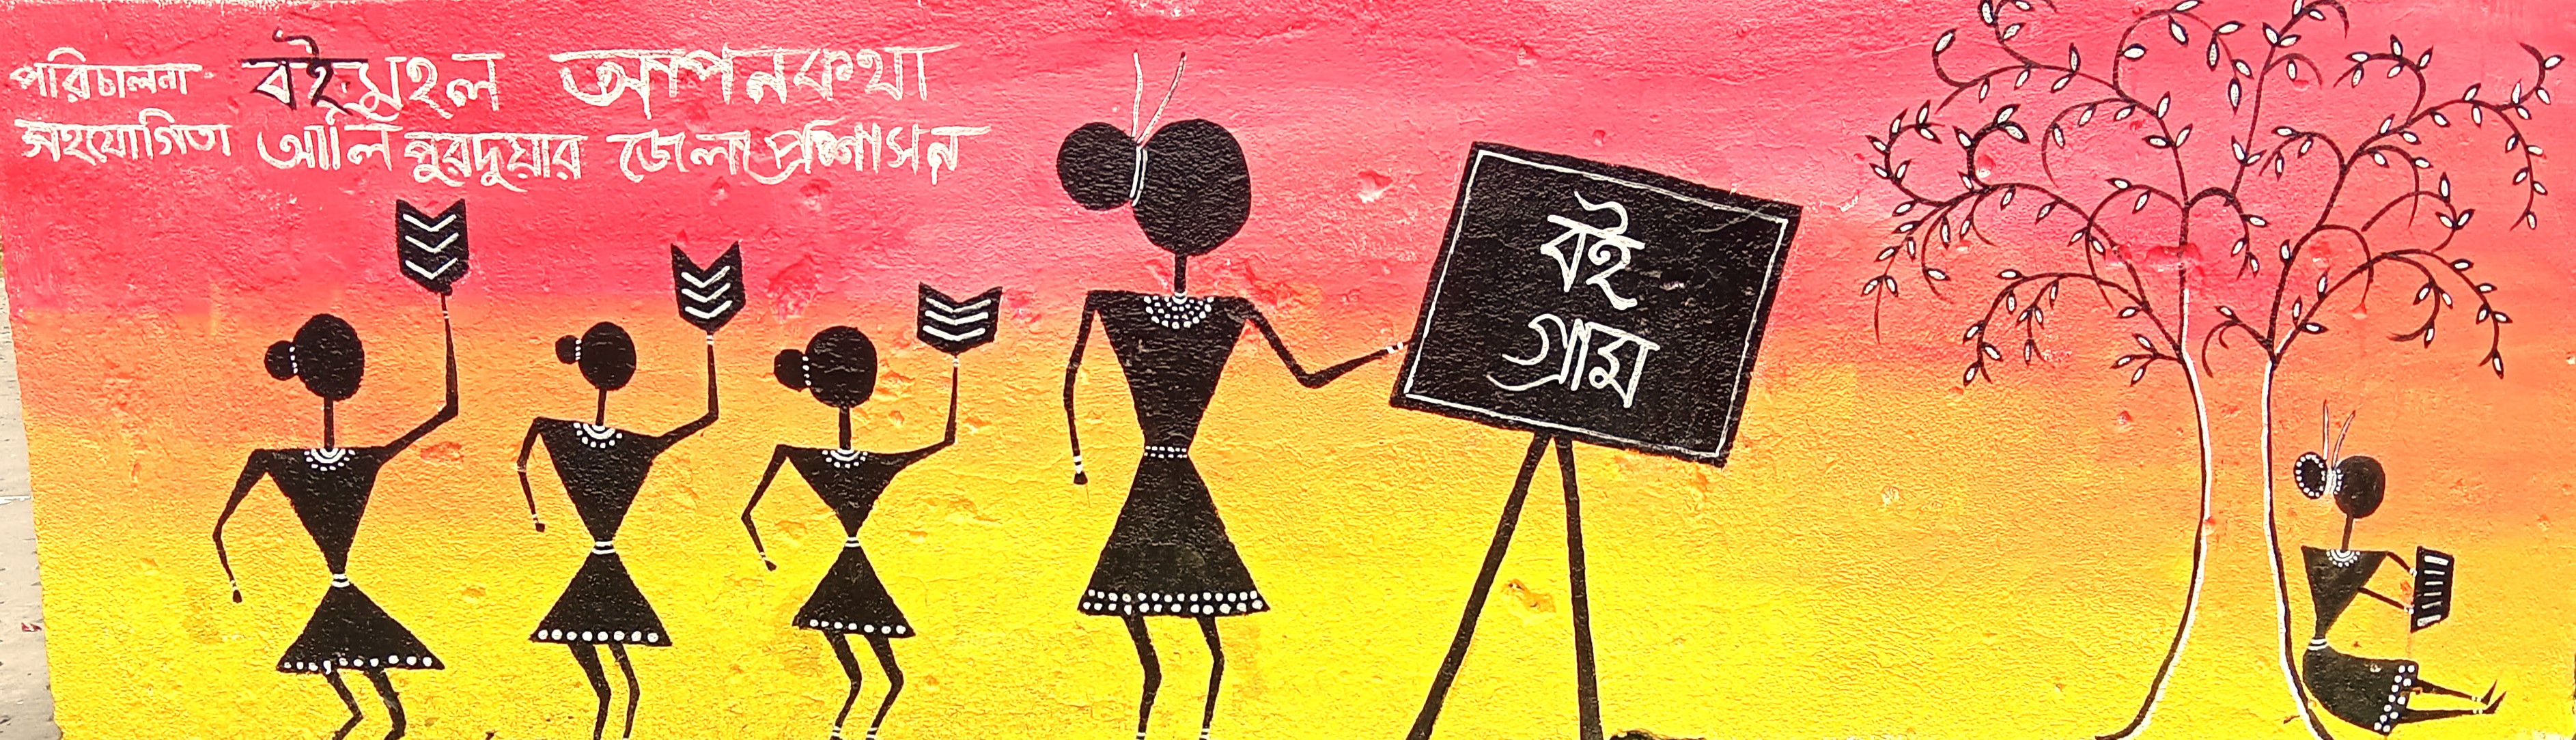 পরিচালনা বইমহল আপনকথা
সহযোগিতা আলিপুরদুয়ার জেলা প্রশাসন
বই
গ্রাম